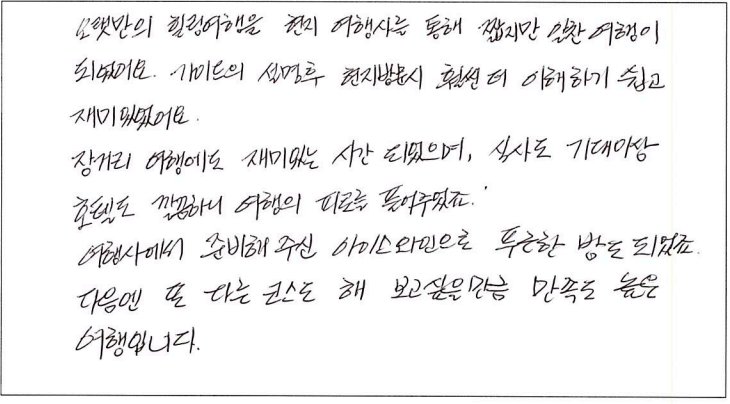 오랫만의 힐링여행을 현지 여행사를 통해 짧지만 알찬 여행이
되었어요. 가이드의 설명후 현지방문시 훨씬 더 이해하기 쉽고
재미있었어요.
장거리 여행에도 재미있는 시간 되었으며, 식사도 기대이상
호텔도 깔끔하니 여행의 피로를 풀어주었죠.
여행사에서 준비해 주신 아이스와인으로 푸근한 밤도 되었죠.
다음엔 또 다른 코스도 해 보고싶을만큼 만족도 높은
여행입니다.